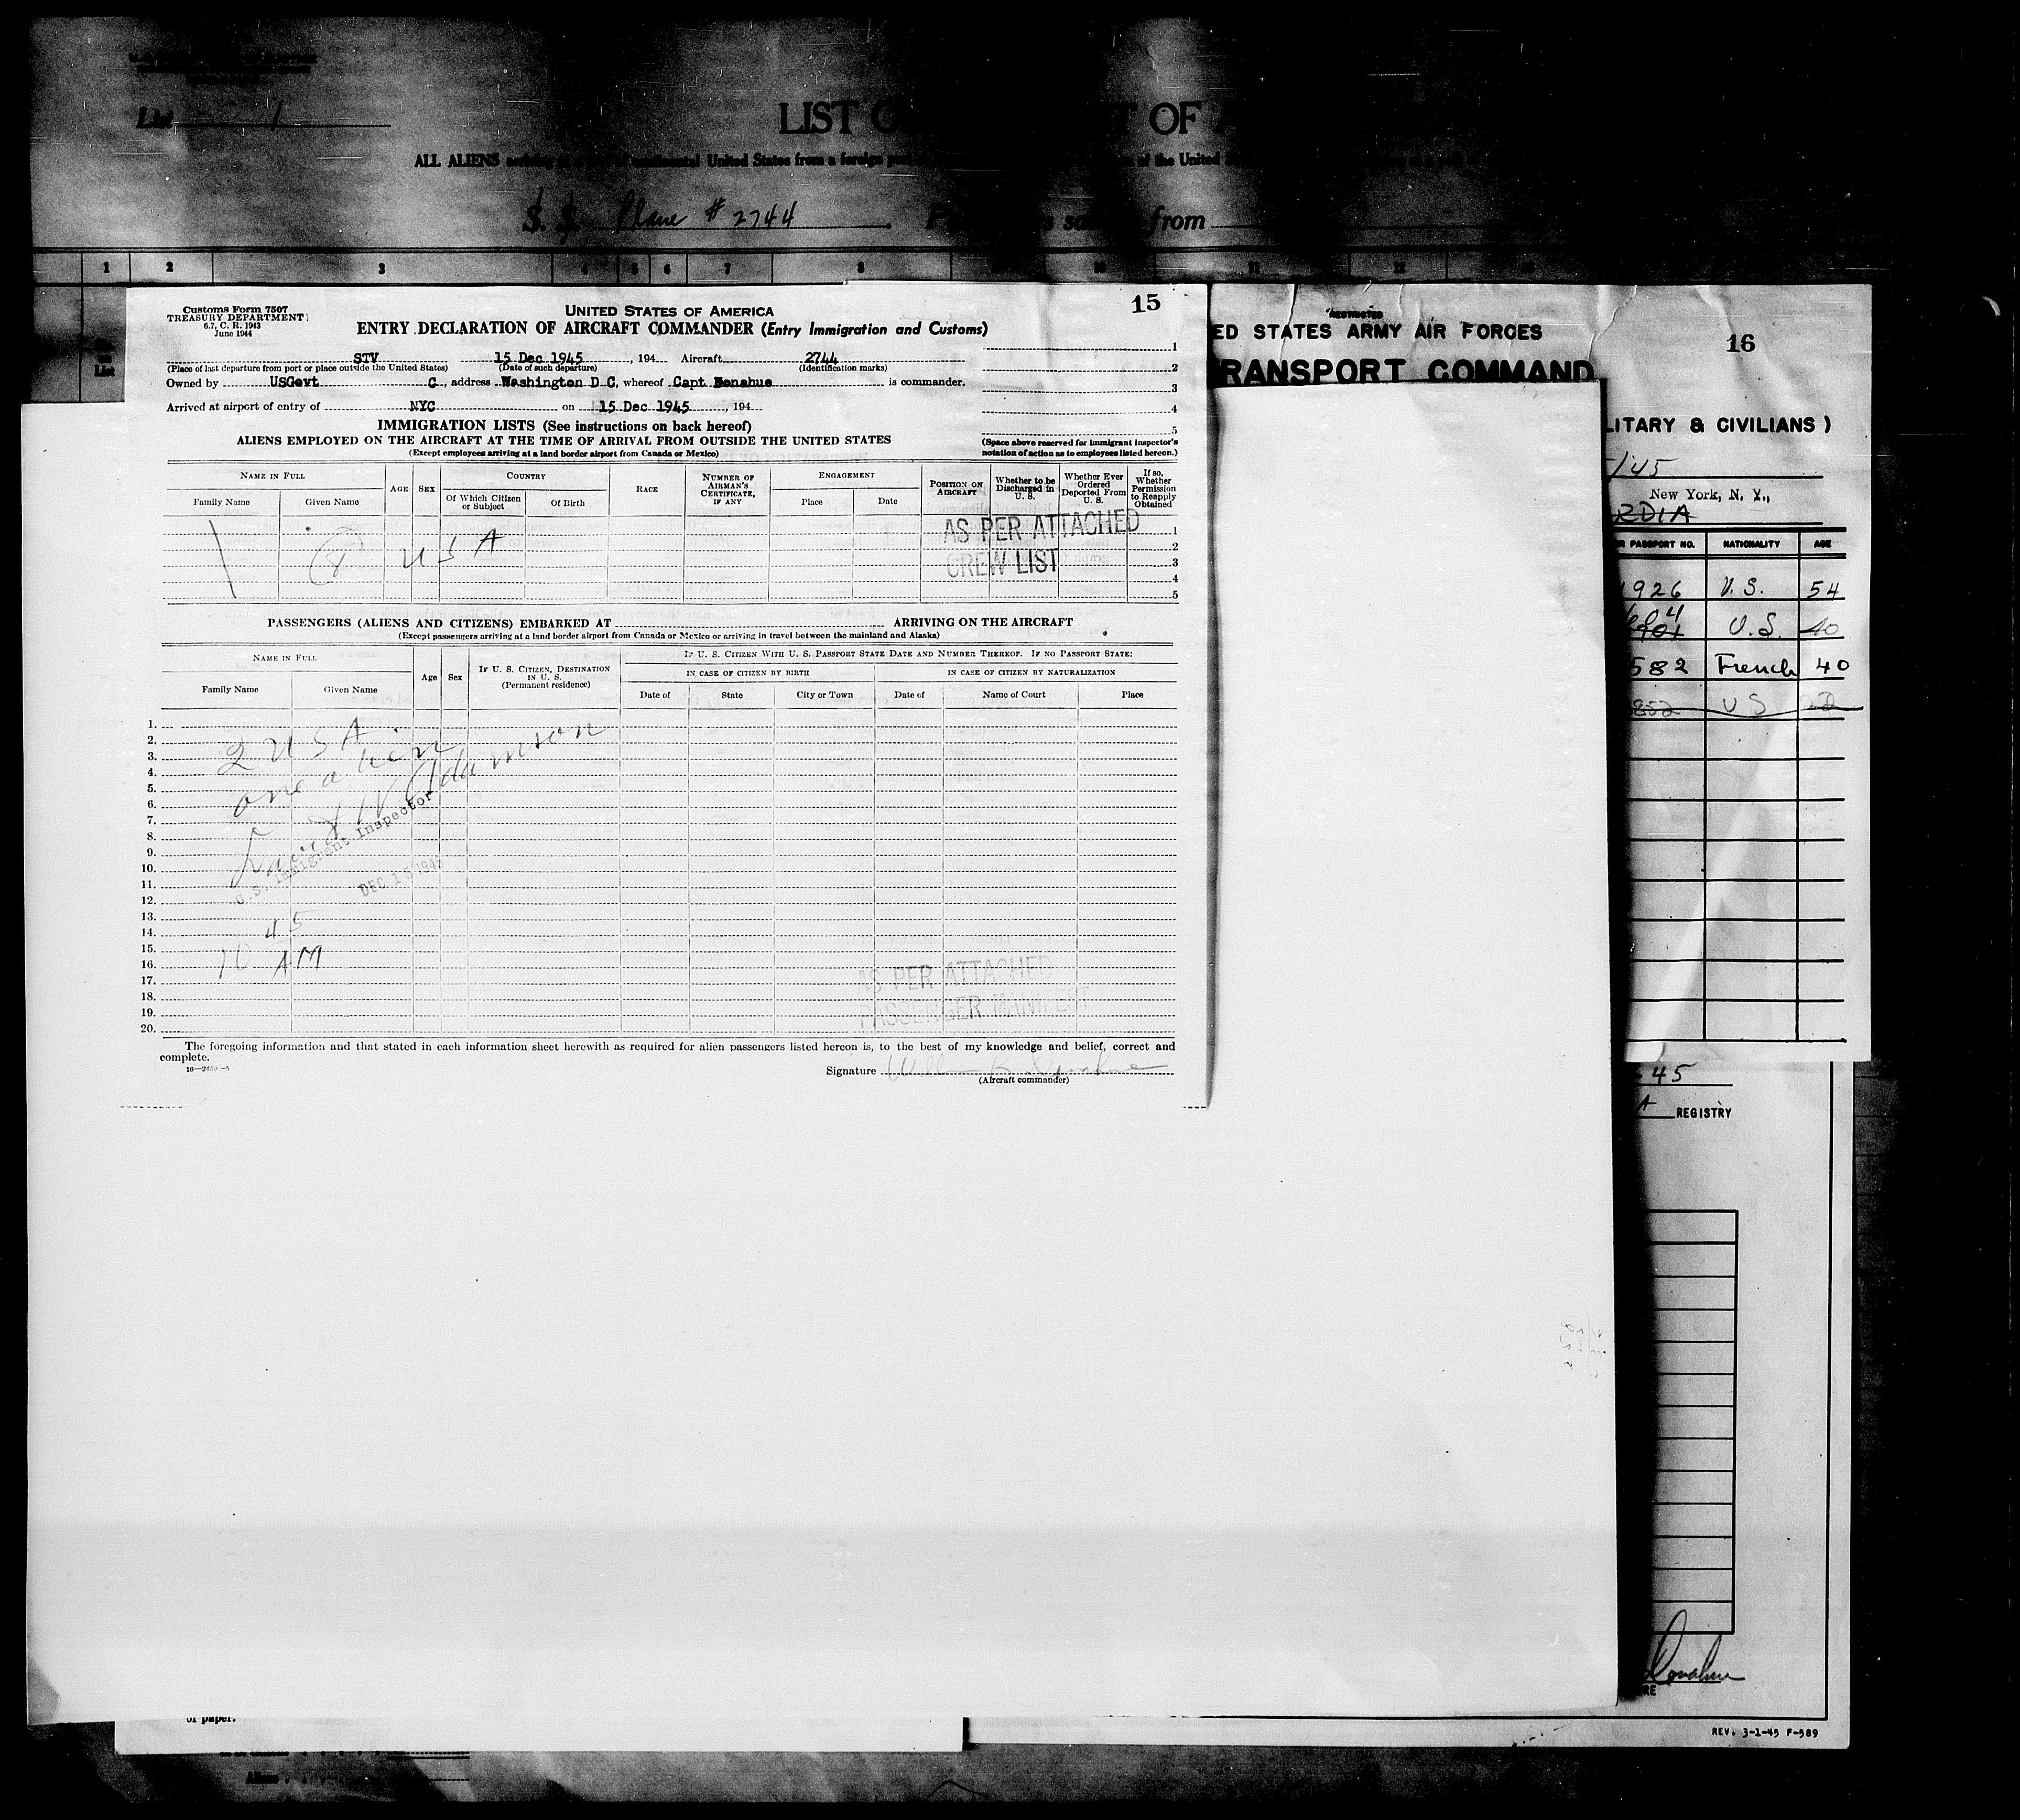 List 1
LIST OF
ALL ALIENS arriving at a port of continental United States from a foreign port of the United
S. S. Plane # 2744 from
1 2 3 4 5 6 7 8 10 11 12
List
15
Customs Form 7507
TREASURY DEPARTMENT
6.7, C. R. 1943
June 1944
UNITED STATES OF AMERICA
ENTRY DECLARATION OF AIRCRAFT COMMANDER (Entry Immigration and Customs)
STV 15 Dec 1945, 194 Aircraft 2744
(Place of last departure from port or place outside the United States) (Date of such departure) (Identification marks)
Owned by USGovt C, address Washington D C, whereof Capt Donahue is commander.
Arrived at airport of entry of NYC on 15 Dec 1945, 194
1
2
3
4
5
(Space above reserved for immigrant inspector's notation of action as to employees listed hereon.)
IMMIGRATION LISTS (See instructions on back hereof)
ALIENS EMPLOYED ON THE AIRCRAFT AT THE TIME OF ARRIVAL FROM OUTSIDE THE UNITED STATES
(Except employees arriving at a land border airport from Canada or Mexico)
NAME IN FULL
Family Name Given Name
AGE SEX
COUNTRY
Of Which Citizen or Subject Of Birth
RACE
NUMBER OF AIRMAN'S CERTIFICATE, IF ANY
ENGAGEMENT
Place Date
POSITION ON AIRCRAFT
Whether to be Discharged in U. S.
Whether Ever Ordered Deported From U. S.
If so, Whether Permission to Reapply Obtained
8 USA
AS PER ATTACHED
CREW LIST
1
2
3
4
5
PASSENGERS (ALIENS AND CITIZENS) EMBARKED AT ARRIVING ON THE AIRCRAFT
(Except passengers arriving at a land border airport from Canada or Mexico or arriving in travel between the mainland and Alaska)
NAME IN FULL
Family Name Given Name
Age Sex
IF U. S. CITIZEN, DESTINATION IN U. S.
(Permanent residence)
IF U. S. CITIZEN WITH U. S. PASSPORT STATE DATE AND NUMBER THEREOF. IF NO PASSPORT STATE:
IN CASE OF CITIZEN BY BIRTH IN CASE OF CITIZEN BY NATURALIZATION
Date of State City or Town Date of Name of Court Place
1.
2.
3.
4.
5.
6.
7.
8.
9.
10.
11.
12.
13.
14.
15.
16.
17.
18.
19.
20.
2 USA
one alien
Adamson
U.S. Immigrant Inspector
DEC 15 1945
10 45
AM
AS PER ATTACHED
PASSENGER MANIFEST
The foregoing information and that stated in each information sheet herewith as required for alien passengers listed hereon is, to the best of my knowledge and belief, correct and
complete.
Signature
(Aircraft commander)
RESTRICTED
ED STATES ARMY AIR FORCES
16
RANSPORT COMMAND
LITARY & CIVILIANS )
/45
New York, N. Y.,
RDIA
R PASSPORT NO. NATIONALITY AGE
926 U.S. 54
U.S. 40
582 French 40
852 US
45
A REGISTRY
Donahue
RE
REV. 3-1-45 F-589
of paper.